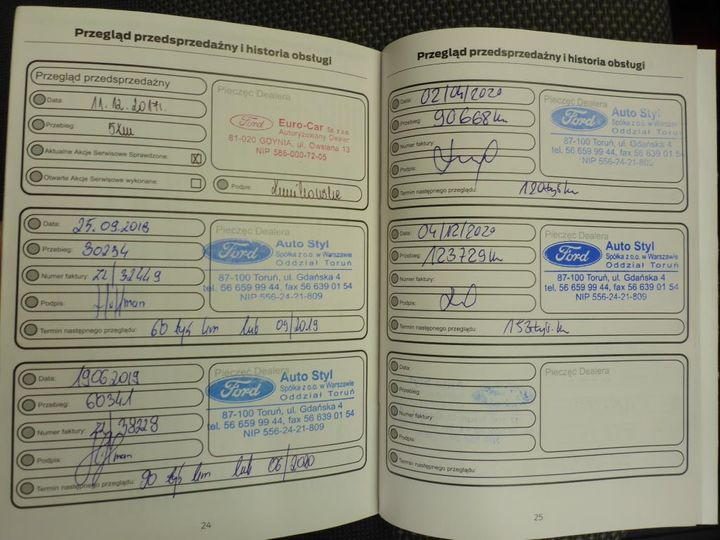 Przegląd przedsprzedażny i historia obsługi
Przegląd przedsprzedażny
Data: 11.12.2017r.
Przebieg: 5km
Aktualne Akcje Serwisowe Sprawdzone: X
Otwarte Akcje Serwisowe wykonane:
Pieczęć Dealera
Ford
Euro-Car Sp. z o.o.
Autoryzowany Dealer
81-020 GDYNIA, ul. Owsiana 13
NIP 586-000-72-05
Podpis:
Data: 25.09.2018
Przebieg: 30234
Numer faktury: 22/32449
Podpis:
Pieczęć Dealera
Ford
Auto Styl
Spółka z o.o. w Warszawie
Oddział Toruń
87-100 Toruń, ul. Gdańska 4
tel. 56 659 99 44, fax 56 639 01 54
NIP 556-24-21-809
Termin następnego przeglądu: 60 tyś km lub 09/2019
Data: 19.06.2019
Przebieg: 60341
Numer faktury: 38228
Podpis:
Pieczęć Dealera
Ford
Auto Styl
Spółka z o.o. w Warszawie
Oddział Toruń
87-100 Toruń, ul. Gdańska 4
tel. 56 659 99 44, fax 56 639 01 54
NIP 556-24-21-809
Termin następnego przeglądu: 90 tyś km lub 06/2020
24
Przegląd przedsprzedażny i historia obsługi
Data: 02/04/2020
Przebieg: 90668km
Numer faktury:
Podpis:
Pieczęć Dealera
Ford
Auto Styl
Spółka z o.o. w Warszawie
Oddział Toruń
87-100 Toruń, ul. Gdańska 4
tel. 56 659 99 44, fax 56 639 01 54
NIP 556-24-21-809
Termin następnego przeglądu: 120tyś.km
Data: 04/12/2020
Przebieg: 123729km
Numer faktury:
Podpis:
Pieczęć Dealera
Ford
Auto Styl
Spółka z o.o. w Warszawie
Oddział Toruń
87-100 Toruń, ul. Gdańska 4
tel. 56 659 99 44, fax 56 639 01 54
NIP 556-24-21-809
Termin następnego przeglądu: 153tyś.km
Data:
Przebieg:
Numer faktury:
Podpis:
Pieczęć Dealera
Termin następnego przeglądu:
25